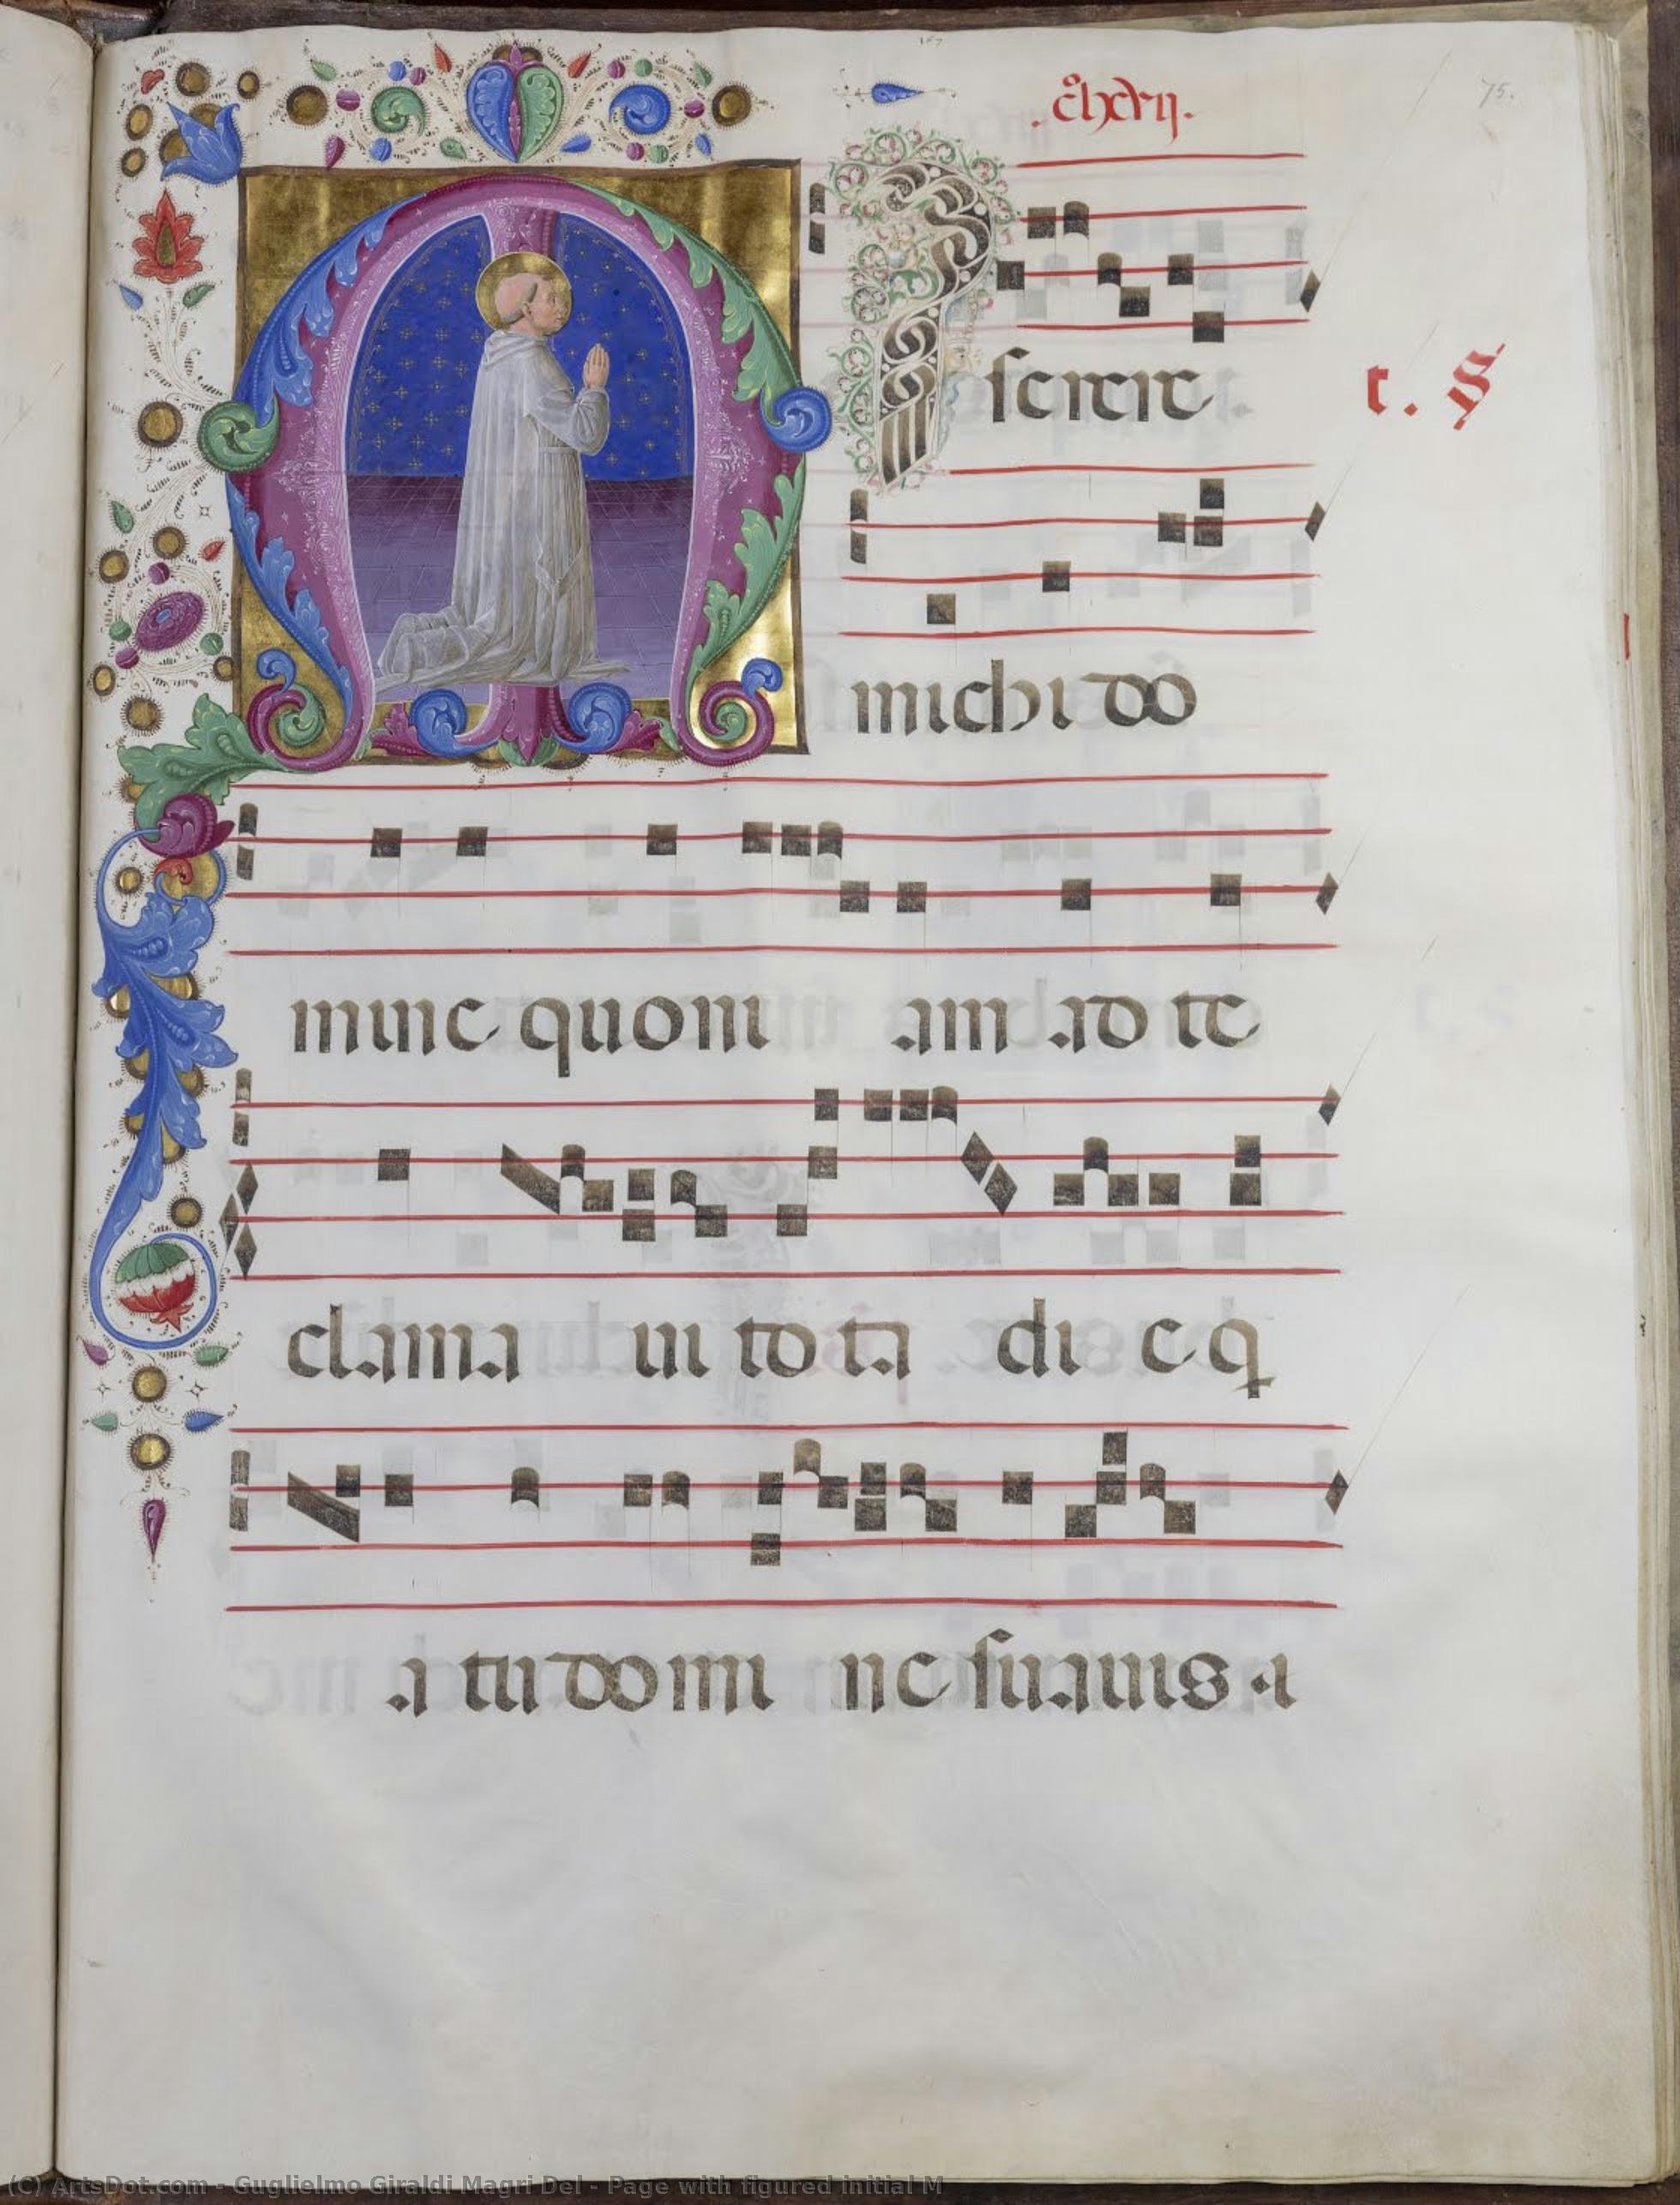 75.
M I
serere
t. S
michi do
mine quoni am ad te
clama ui to ta di e q
a tu domi ne suauis a
(C) ArtsDot.com - Guglielmo Giraldi Magri Del - Page with figured initial M